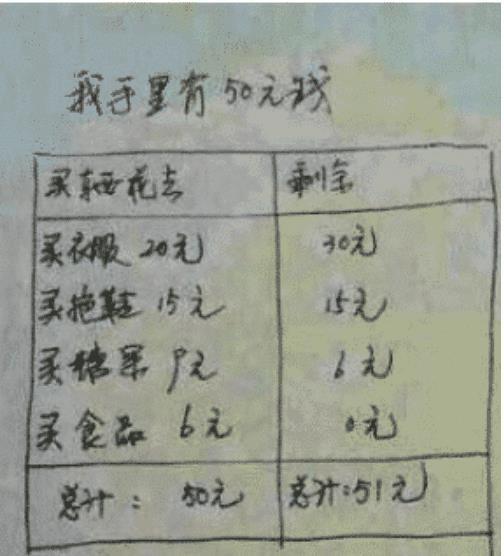 我手里有50元钱
买东西花去 剩余
买衣服 20元 30元
买拖鞋 15元 15元
买糖果 9元 6元
买食品 6元 0元
总计: 50元 总计:51元